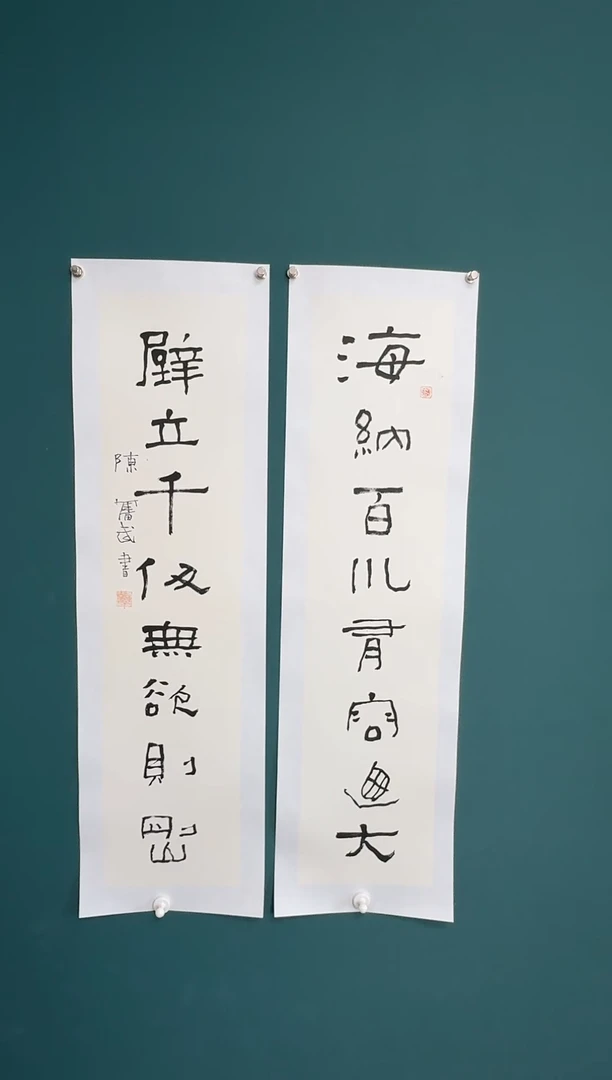 海納百川有容迺大
壁立千仞無欲則剛
陳奮武書